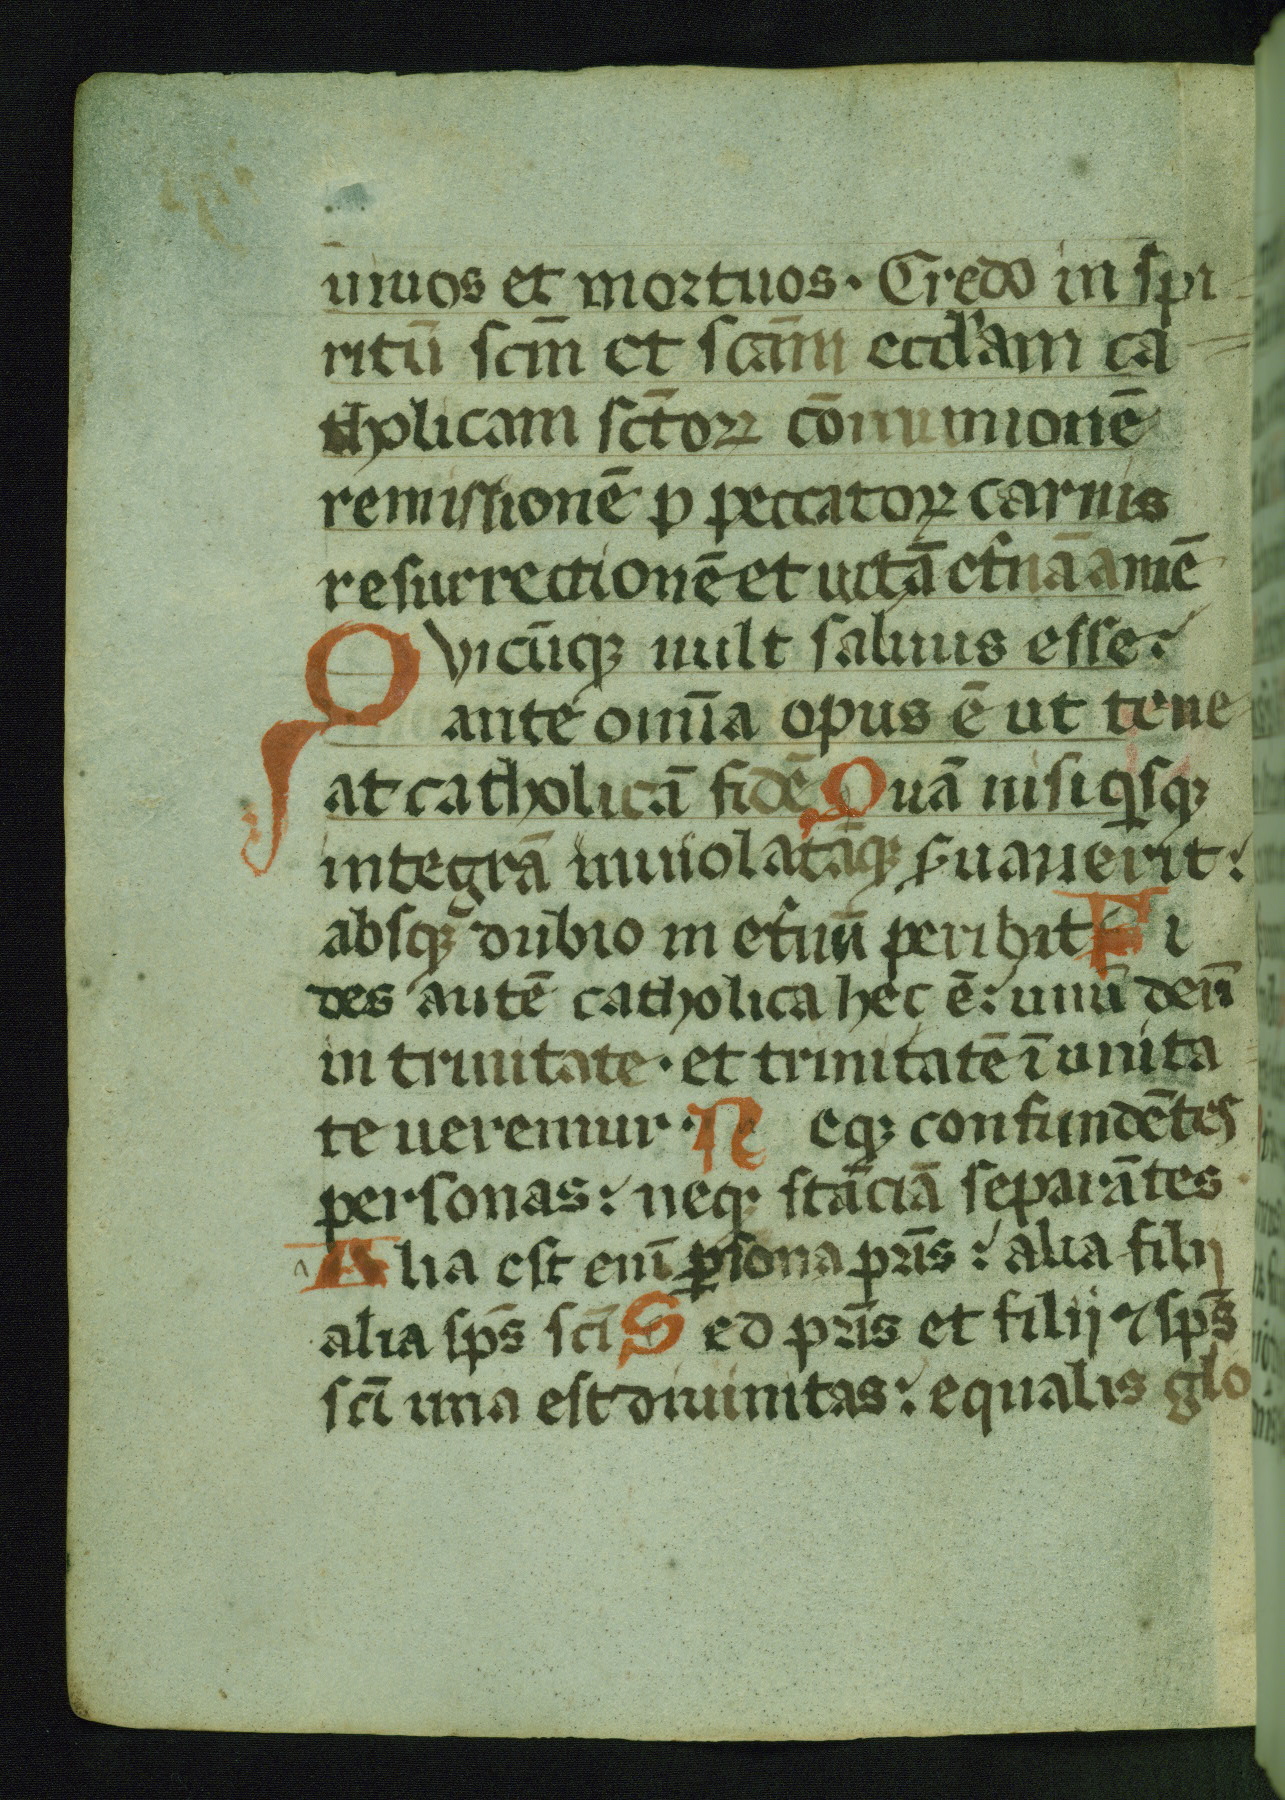 uiuos et mortuos. Credo in spi-
ritū scm̄ et scām eccl'am ca
tholicam sctōꝝ cōmunionē
remissionē p peccatoꝝ carnis
resurrectionē et uitā et͛nā amē
Qvicūqꝫ uult saluus esse:
ante omīa opus ē ut tene
at catholicā fidē Quā nisi qͥsqꝫ
integrā inuiolatāqꝫ ẜuauerit:
absqꝫ dubio in et͛nū peribit Fi
des autē catholica hec ē: unū deū
in trinitate. et trinitatē ī unita
te ueremur. Neqꝫ confundētes
personas: neqꝫ stāciā separātes
Alia est enī ꝑsona pr̄is: alia filij
alia sp̄s scī Sed pr̄is et filij ⁊ sp̄s
scī una est diuinitas: equalis glo